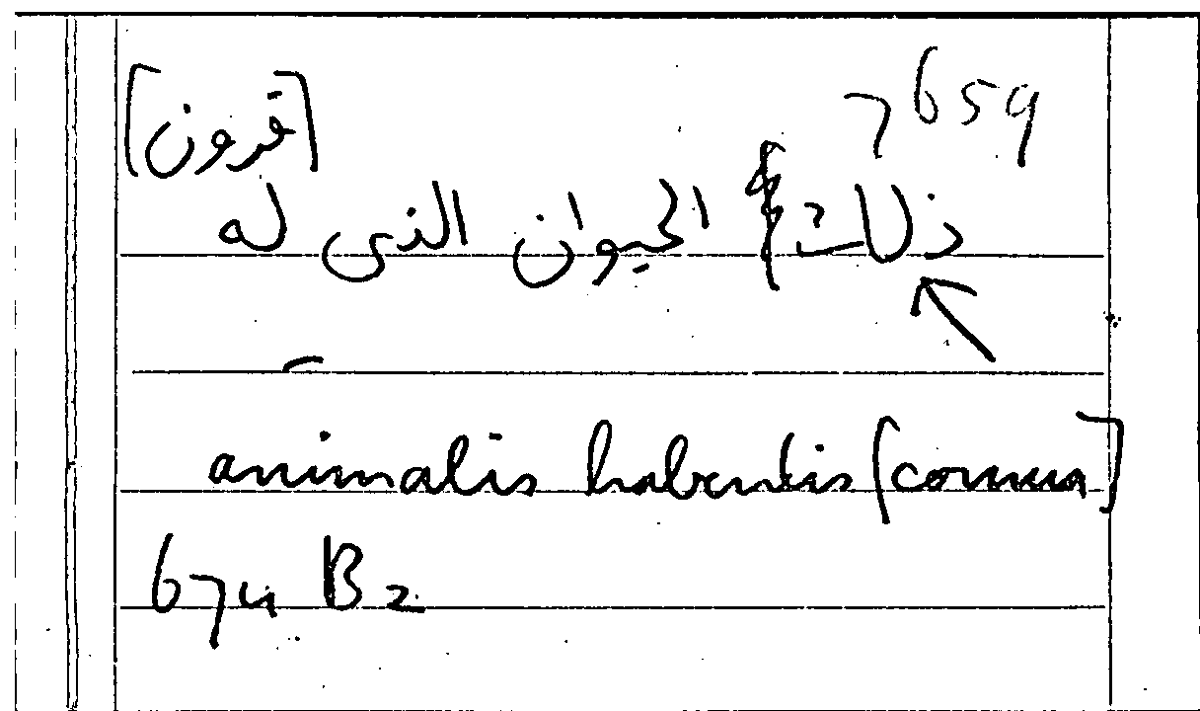 7659
[قرون]
ذلك} الحيوان الذى له
animalis habentis [cornua]
674 B2